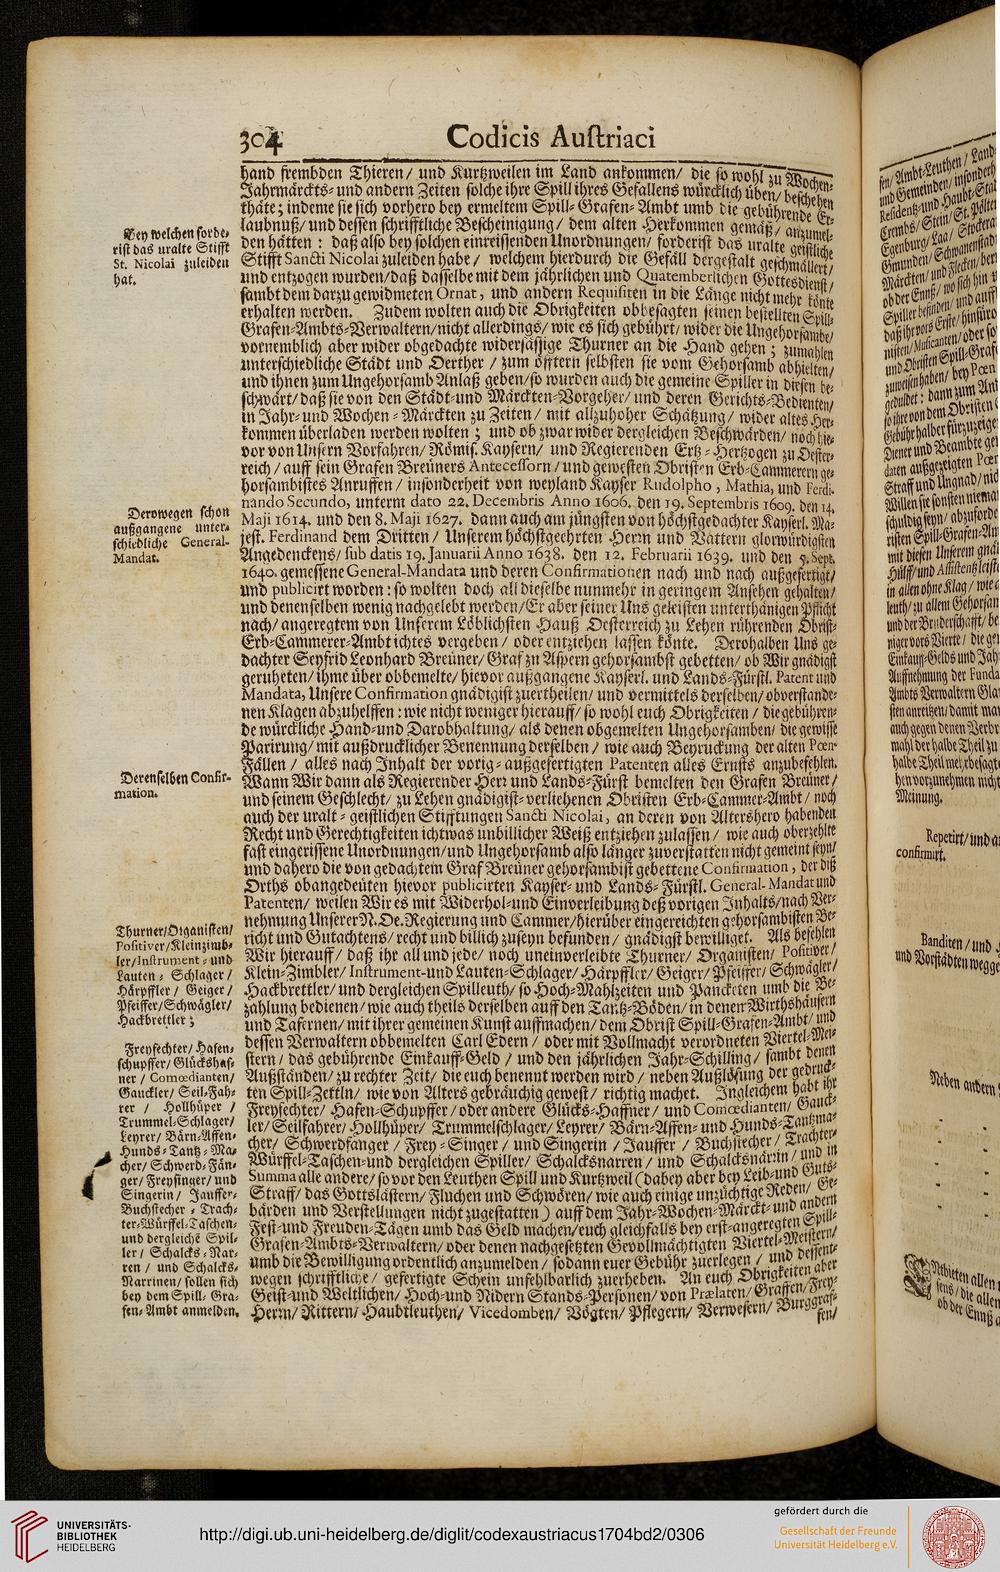 304
Codicis Austriaci
hand frembden Thieren/ und Kurtzweilen im Land ankommen/ die so wohl zu Wochen-
Jahrmärckts- und andern Zeiten solche ihre Spill ihres Gefallens würcklich üben/ beschehen
thäte; indeme sie sich vorhero bey ermeltem Spill-Grafen-Ambt umb die gebührende Er-
laubnuß/ und dessen schrifftliche Bescheinigung/ dem alten Herkommen gemäß/ anzumel-
den hätten : daß also bey solchen einreissenden Unordnungen/ forderist das uralte geistliche
Stifft Sancti Nicolai zuleiden habe/ welchem hierdurch die Gefäll dergestalt geschmällert/
und entzogen wurden/daß dasselbe mit dem jährlichen und Quatemberlichen Gottesdienst/
sambt dem darzu gewidmeten Ornat, und andern Requisiten in die Länge nicht mehr könte
erhalten werden. Zudem wolten auch die Obrigkeiten obbesagten seinen bestellten Spill-
Grafen-Ambts-Verwaltern/nicht allerdings/ wie es sich gebührt/ wider die Ungehorsambe/
vornemblich aber wider obgedachte widersässige Thurner an die Hand gehen ; zumahlen
unterschiedliche Städt und Oerther / zum öfftern selbsten sie vom Gehorsamb abhielten/
und ihnen zum Ungehorsamb Anlaß geben/so wurden auch die gemeine Spiller in diesen be-
schwärt/ daß sie von den Städt-und Märckten-Vorgeher/ und deren Gerichts-Bedienten/
in Jahr-und Wochen-Märckten zu Zeiten/ mit allzuhoher Schätzung/ wider altes Her-
kommen überladen werden wolten ; und ob zwar wider dergleichen Beschwärden/ noch hie-
vor von Unsern Vorfahren/ Römis. Kaysern/ und Regierenden Ertz-Hertzogen zu Oester-
reich / auff sein Grafen Breüners Antecessorn / und gewesten Obristen Erb-Cammerern ge-
horsambistes Anruffen/ insonderheit von weyland Kayser Rudolpho, Mathia, und Ferdi-
nando Secundo, unterm dato 22. Decembris Anno 1606. den 19. Septembris 1609. den 14.
Maji 1614. und den 8. Maji 1627. dann auch am jüngsten von höchstgedachter Kayserl. Ma-
jest. Ferdinand dem Dritten/ Unserem höchstgeehrten Herrn und Vattern glorwürdigsten
Angedenckens/ sub datis 19. Januarii Anno 1638. den 12. Februarii 1639. und den 5. Sept.
1640. gemessene General-Mandata und deren Confirmationen nach und nach außgefertigt/
und publicirt worden : so wolten doch all dieselbe nunmehr in geringem Ansehen gehalten/
und denenselben wenig nachgelebt werden/Er aber seiner Uns geleisten unterthänigen Pflicht
nach/ angeregtem von Unserem Löblichsten Hauß Oesterreich zu Lehen rührenden Obrist-
Erb-Cammerer-Ambt ichtes vergeben/ oder entziehen lassen könte. Derohalben Uns ge-
dachter Seyfrid Leonhard Breüner/ Graf zu Aspern gehorsambst gebetten/ ob Wir gnädigst
geruheten/ ihme über obbemelte/ hievor außgangene Kayserl. und Lands-Fürstl. Patent und
Mandata, Unsere Confirmation gnädigist zuertheilen/ und vermittels derselben/ obverstande-
nen Klagen abzuhelffen : wie nicht weniger hierauff/ so wohl euch Obrigkeiten / die gebühren-
de würckliche Hand-und Darobhaltung/ als denen obgemelten Ungehorsamben/ die gewisse
Parirung/ mit außdrucklicher Benennung derselben / wie auch Beyruckung der alten Pœn-
Fällen / alles nach Inhalt der vorig-außgefertigten Patenten alles Ernsts anzubefehlen.
Wann Wir dann als Regierender Herr und Lands-Fürst bemelten den Grafen Breüner/
und seinem Geschlecht/ zu Lehen gnädigist-verliehenen Obristen Erb-Cammer-Ambt / noch
auch der uralt-geistlichen Stifftungen Sancti Nicolai, an deren von Altershero habenden
Recht und Gerechtigkeiten ichtwas unbillicher Weiß entziehen zulassen / wie auch oberzehlte
fast eingerissene Unordnungen/und Ungehorsamb also länger zuverstatten nicht gemeint seyn/
und dahero die von gedachtem Graf Breüner gehorsambist gebettene Confirmation, der diß
Orths obangedeüten hievor publicirten Kayser-und Lands-Fürstl. General-Mandat und
Patenten/ weilen Wir es mit Widerhol-und Einverleibung deß vorigen Inhalts/nach Ver-
nehmung Unserer N.Oe.Regierung und Cammer/hierüber eingereichten gehorsambisten Be-
richt und Gutachtens/ recht und billich zuseyn befunden/ gnädigst bewilliget. Als befehlen
Wir hierauff/ daß ihr all und jede/ noch uneinverleibte Thurner/ Organisten/ Positiver/
Klein-Zimbler/ Instrument-und Lauten-Schlager/ Härpffler/ Geiger/ Pfeiffer/ Schwägler/
Hackbrettler/ und dergleichen Spilleuth/ so Hoch-Mahlzeiten und Pancketen umb die Be-
zahlung bedienen/ wie auch theils derselben auff den Tantz-Böden/ in denen Wirthshäusern
und Tafernen/ mit ihrer gemeinen Kunst auffmachen/ dem Obrist Spill-Grafen-Ambt/ und
dessen Verwaltern obbemelten Carl Edern / oder mit Vollmacht verordneten Viertel-Mei-
stern/ das gebührende Einkauff-Geld / und den jährlichen Jahr-Schilling/ sambt denen
Außständen/ zu rechter Zeit/ die euch benennt werden wird / neben Außlösung der gedruck-
ten Spill-Zettln/ wie von Alters gebräuchig gewest/ richtig machet. Ingleichem habt ihr
Freysechter/ Hafen-Schupffer/ oder andere Glücks-Haffner/ und Comœdianten/ Gauck-
ler/ Seilfahrer/ Hollhüper/ Trummelschlager/ Leyrer/ Bärn-Affen-und Hunds-Tantzma-
cher/ Schwerdfanger / Frey-Singer/ und Singerin / Jauffer / Buchstecher / Trachter-
Würffel-Taschen-und dergleichen Spiller/ Schalcksnarren / und Schalcksnärin/ und in
Summa alle andere/ so vor den Leuthen Spill und Kurtzweil (dabey aber bey Leib-und Guts-
Straff/ das Gottslästern/ Fluchen und Schwören/ wie auch einige unzüchtige Reden/ Ge-
bärden und Verstellungen nicht zugestatten) auff dem Jahr-Wochen-Märckt-und andern
Fest-und Freuden-Tägen umb das Geld machen/euch gleichfalls bey erst-angeregten Spill-
Grafen-Ambts-Verwaltern/ oder denen nachgesetzten Gevollmächtigten Viertel-Meistern/
umb die Bewilligung ordentlich anzumelden / sodann euer Gebühr zuerlegen / und dessent-
wegen schrifftliche / gefertigte Schein unfehlbarlich zuerheben. An euch Obrigkeiten aber
Geist-und Weltlichen/ Hoch-und Nidern Stands-Personen/ von Prælaten/ Graffen/ Frey-
Herrn/ Rittern/ Haubtleuthen/ Vicedomben/ Vögten/ Pflegern/ Verwesern/ Burggraf-
fen/
Bey welchen forde-
rist das uralte Stifft
St. Nicolai zuleiden
hat.
Derowegen schon
außgangene unter-
schiedliche General-
Mandat.
Derenselben Confir-
mation.
Thurner/Organisten/
Positiver/Kleinzimb-
ler/Instrument-und
Lauten-Schlager/
Härpffler / Geiger/
Pfeiffer/Schwägler/
Hackbrettler;
Freyfechter/ Hafen-
schupffer/ Glückshaf-
ner / Comœdianten/
Gauckler/ Seil-Fah-
rer / Hollhüper /
Trummel-Schlager/
Leyrer/ Bärn-Affen-
Hunds-Tantz-Ma-
cher/ Schwerd-Fän-
ger/ Freysinger/ und
Singerin/ Jauffer-
Buchstecher, Trach-
ter-Würffel-Taschen-
und dergleiche Spil-
ler / Schalcks-Nar-
ren / und Schalcks-
Narrinen/ sollen sich
bey dem Spill-Gra-
fen-Ambt anmelden.
fen/ Ambt-Leuthen/ Land-
und Gemeinden/ insonderh
Residentz-und Haubt-Sta
Crembs/ Stein/ St. Pölten
Egenburg/ Laa/ Stockera
Gmunden/ Schwanenstad
Märckten/ und Flecken/ ber
ob der Ennß/ wo sich hin
Spiller befinden/ und auff
daß ihr vors Erste/ hinfüro
nisten/ Musicanten/ oder so
und Obristen Spill-Graf
zuweisen haben/ bey Pœn
geduldet: dann zum An
so ihre von dem Obristen
Gebühr halber fürzuzeige
Diener und Beambte ge
daten außgezeigten Pœn
Straff und Ungnad/ nic
Willen sie sonsten niemal
schuldig seyn/ abzuforde
risten Spill-Grafen-An
mit diesen Unserem gnä
Hülff/ und Assistentz leiste
in allen ohne Klag / wie
leuth/ zu allem Gehorsam
und der Bruderschafft/ be
niger vors Vierte/ die ge
Einkauff-Gelds und Jah
Auffnehmung der Funda
Ambts Verwaltern Gla
sten anreitzen/ damit ma
auch gegen denen Verbr
mahl der halbe Theil zu
halbe Theil mehrbesagte
hen vorzunehmen nicht
Meinung.
Repetirt/ und a
confirmirt.
Banditen / und
und Vorstädten wegge
Neben andern
Entbieten allen
sens / die allen
ob der Ennß
UNIVERSITÄTS-
BIBLIOTHEK
HEIDELBERG
http://digi.ub.uni-heidelberg.de/diglit/codexaustriacus1704bd2/0306
gefördert durch die
Gesellschaft der Freunde
Universität Heidelberg e.V.